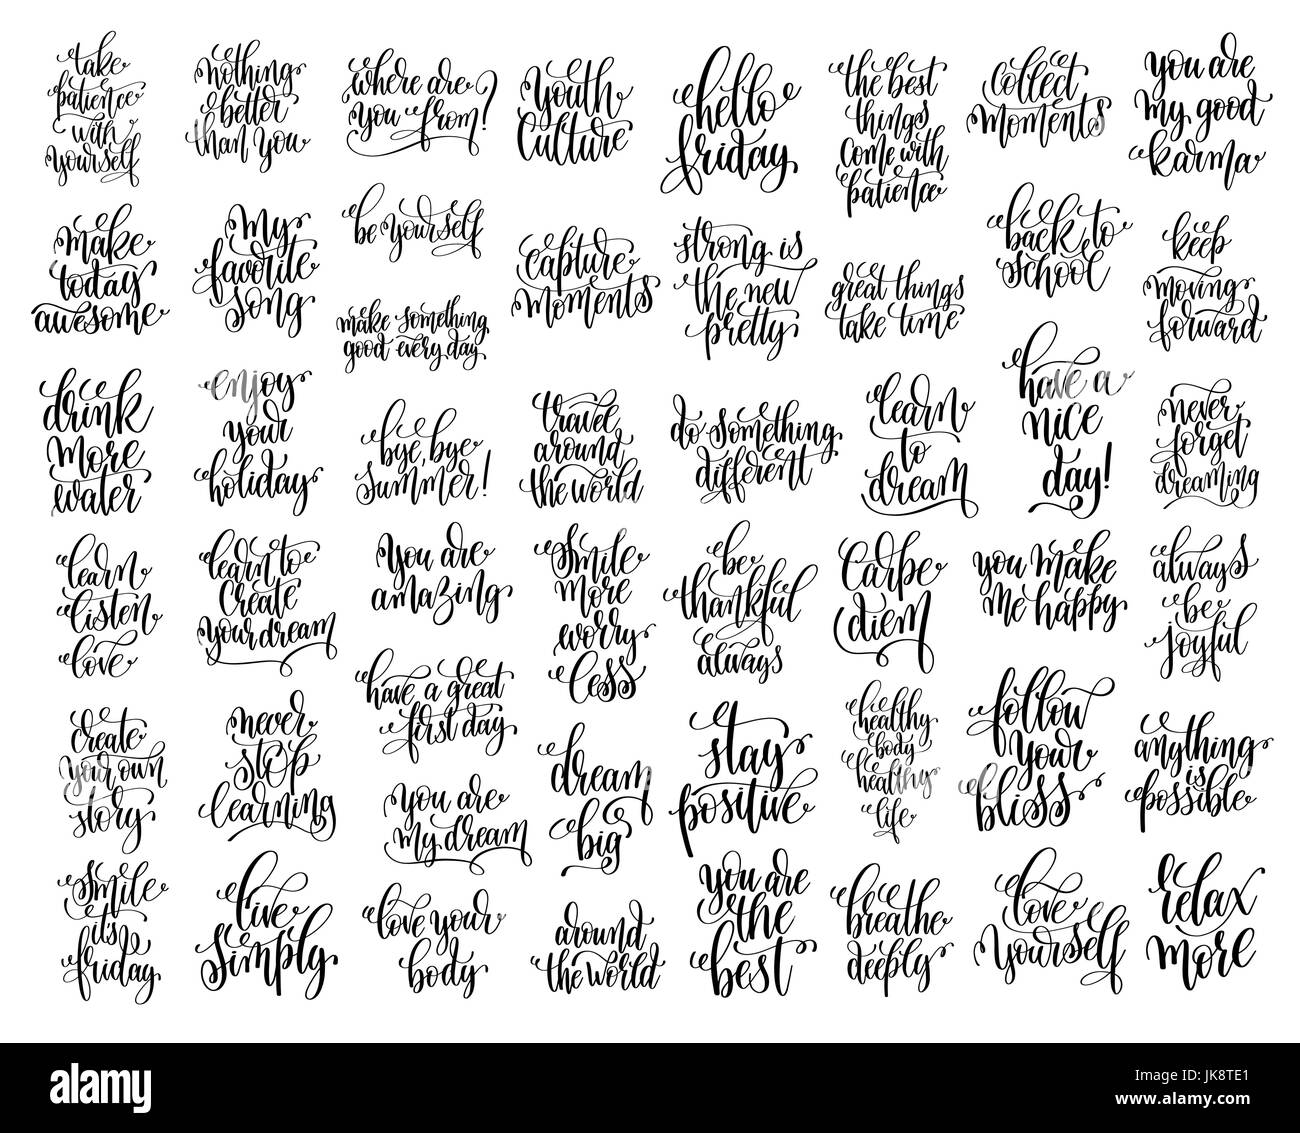 take
patience
with
yourself
nothing
better
than you
where are
you from?
youth
culture
hello
friday
the best
things
come with
patience
collect
moments
you are
my good
karma
make
today
awesome
my
favorite
song
be yourself
make something
good every day
capture
moments
strong is
the new
pretty
great things
take time
back to
school
keep
moving
forward
drink
more
water
enjoy
your
holiday
bye, bye
summer!
travel
around
the world
do something
different
learn
to
dream
have a
nice
day!
never
forget
dreaming
learn
listen
love
learn to
create
your dream
you are
amazing
smile
more
worry
less
be
thankful
always
carpe
diem
you make
me happy
always
be
joyful
create
your own
story
never
stop
learning
have a great
first day
you are
my dream
dream
big
stay
positive
healthy
body
healthy
life
follow
your
bliss
anything
is
possible
smile
it's
friday
live
simply
love your
body
around
the world
you are
the
best
breathe
deeply
love
yourself
relax
more
a alamy stock photo
alamy
Image ID: JK8TE1
www.alamy.com